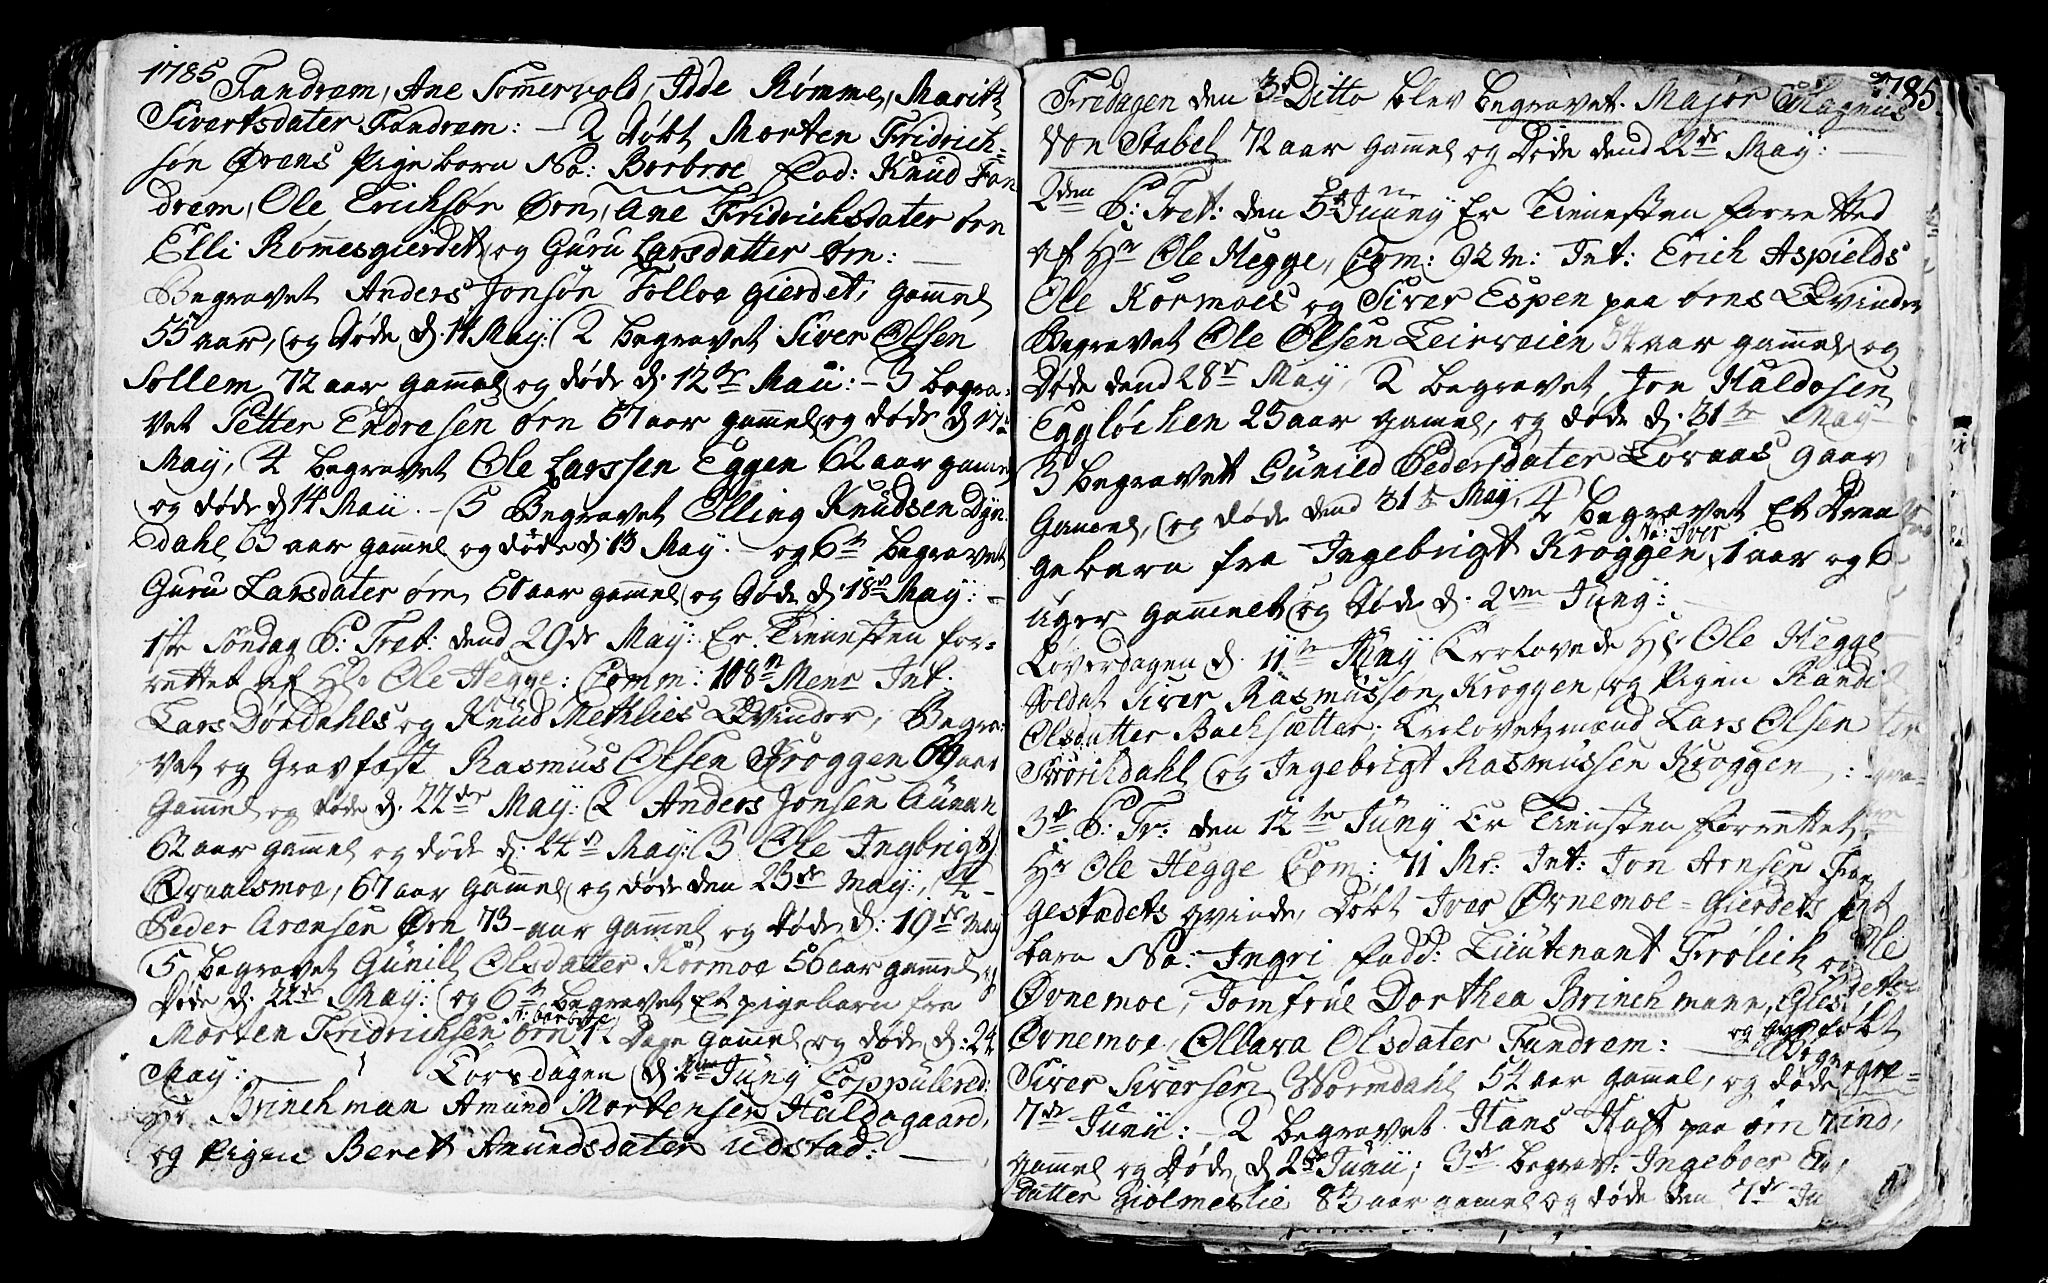 1785
Fandrem, Ane Somervold, Idde Rømme, Maritz
Sivertsdater Fandrem: - 2 døbt Morten Fridrich=
søn Ørens Pige barn Na: Borbroe fad: Knud Fan
drem, Ole Erichsør Ørn, Ane Fridrichsdater ørn
Elli Romesgierdet og Guru Larsdatter ørn: —
Begravet Anders Jonsøn Solloe gierdet, gammel
55 aar, og døde d. 14 May: 2 begravet Siver Olsen
Sollem 72 aar gammel og døde d. 12te Maii: - 3 begra=
vet Petter Endresen ørn 67 aar gammel og døde d 17
May, 4 begravet Ole Larssen Eggen 62 aar gamel
og døde d 14 Maii. - 5 Begravet Elling Knudsen Dyr
dahl 63 aar gammel og døde d. 13 May. - og 6te begravet
Guru Larsdater ørn 60 aar gammel og døde d. 18de May: -
1ste Søndag P: Tret: dend 29de May: Er Tienesten for=
rettet af Hr Ole Hegge: Comm: 108 Menr Int.
Lars Dørdahls og Knud Methlies Qvinder, Begra=
vet og Gravfæst Rasmus Olsen Kroggen 69 aar
Gammel og døde d. 22de May: 2 Anders Jonsen Aunan
62 aar gammel og døde d: 24de May: 3 Ole Ingbrigts
Øvaalsmoe, 67 aar gammel og døde den 23de May:, 4 -
Peder Arensen Ørn 73 - aar gammel og døde d: 19de May
5 begravet Gunill Olsdatter Kormoe 56 aar gammel og
døde d: 22de May: og 6te begravet Et pigebarn fra
Morten Fridrichsen ørn N: barbroe 12 Dage gammel og døde d: 24
May: — Torsdagen d. 2den Juny Coppulered:
Hr Brinchman Amund Mortensen Huldsgaard,
og Pigen Beret Amundsdater Udstad: —
1785
Fredagen den 3de Ditto blev begravet Major Magnus
von Stabel 72 aar gammel og døde dend 22de May: —
2den P: Tret: den 5te Juny Er Tienesten forretted
af Hr Ole Hegge, Com: 92 m: Int: Erich Aspields
Ole Kormoes og Siver Espen paa ørns Qvinder
Begravet Ole Olsen Leirveien 54 aar gammel og
døde dend 28de May, 2 begravet Jon Haldosen
Eggløchen 25 aar gamel, og døde d. 31te May -
3 begravet Gunild Pedersdater Løraas 9 aar
Gamel, og døde dend 31te May, 4 begravet Et Dren
ge barn fra Ingebrigt Kroggen Na: Iver 1 aar og 6
uger gammelt og døde d. 2den Juny: —
Løverdagen d. 11te Juny Trolovede Hr Ole Hegge
Soldat Siver Rasmussøn Kroggen og Pigen Randi
Olsdatter Bachsætter. Trolovetzmænd Lars Olsen
Storichdahl og Ingebrigt Rasmussen Kroggen :
3de P: Tr: den 12te Juny Er Tienesten forrettet
Hr Ole Hegge Com: 71 Mr. Int: Jon Arnsen
gestædets qvinde, Døbt Iver Øvnemoe = gierdets
barn Na: Ingri fadd: Lieutenant Frølich og Ole
Øvnemoe, Jomfrue Dorthea Brinchmann,
Øvnemoe, Ollava Olsdater Fandrem: —
Siver Siversen Wormdahl 54 aar gammel, og døde
7de Junii: - 2 begravet Hans Hoft paa ørn
gammel og døde d 2den Junii; 3de begrav: Ingeboer
datter Giolmeslie 83 aar gamel og døde den 7de Ju